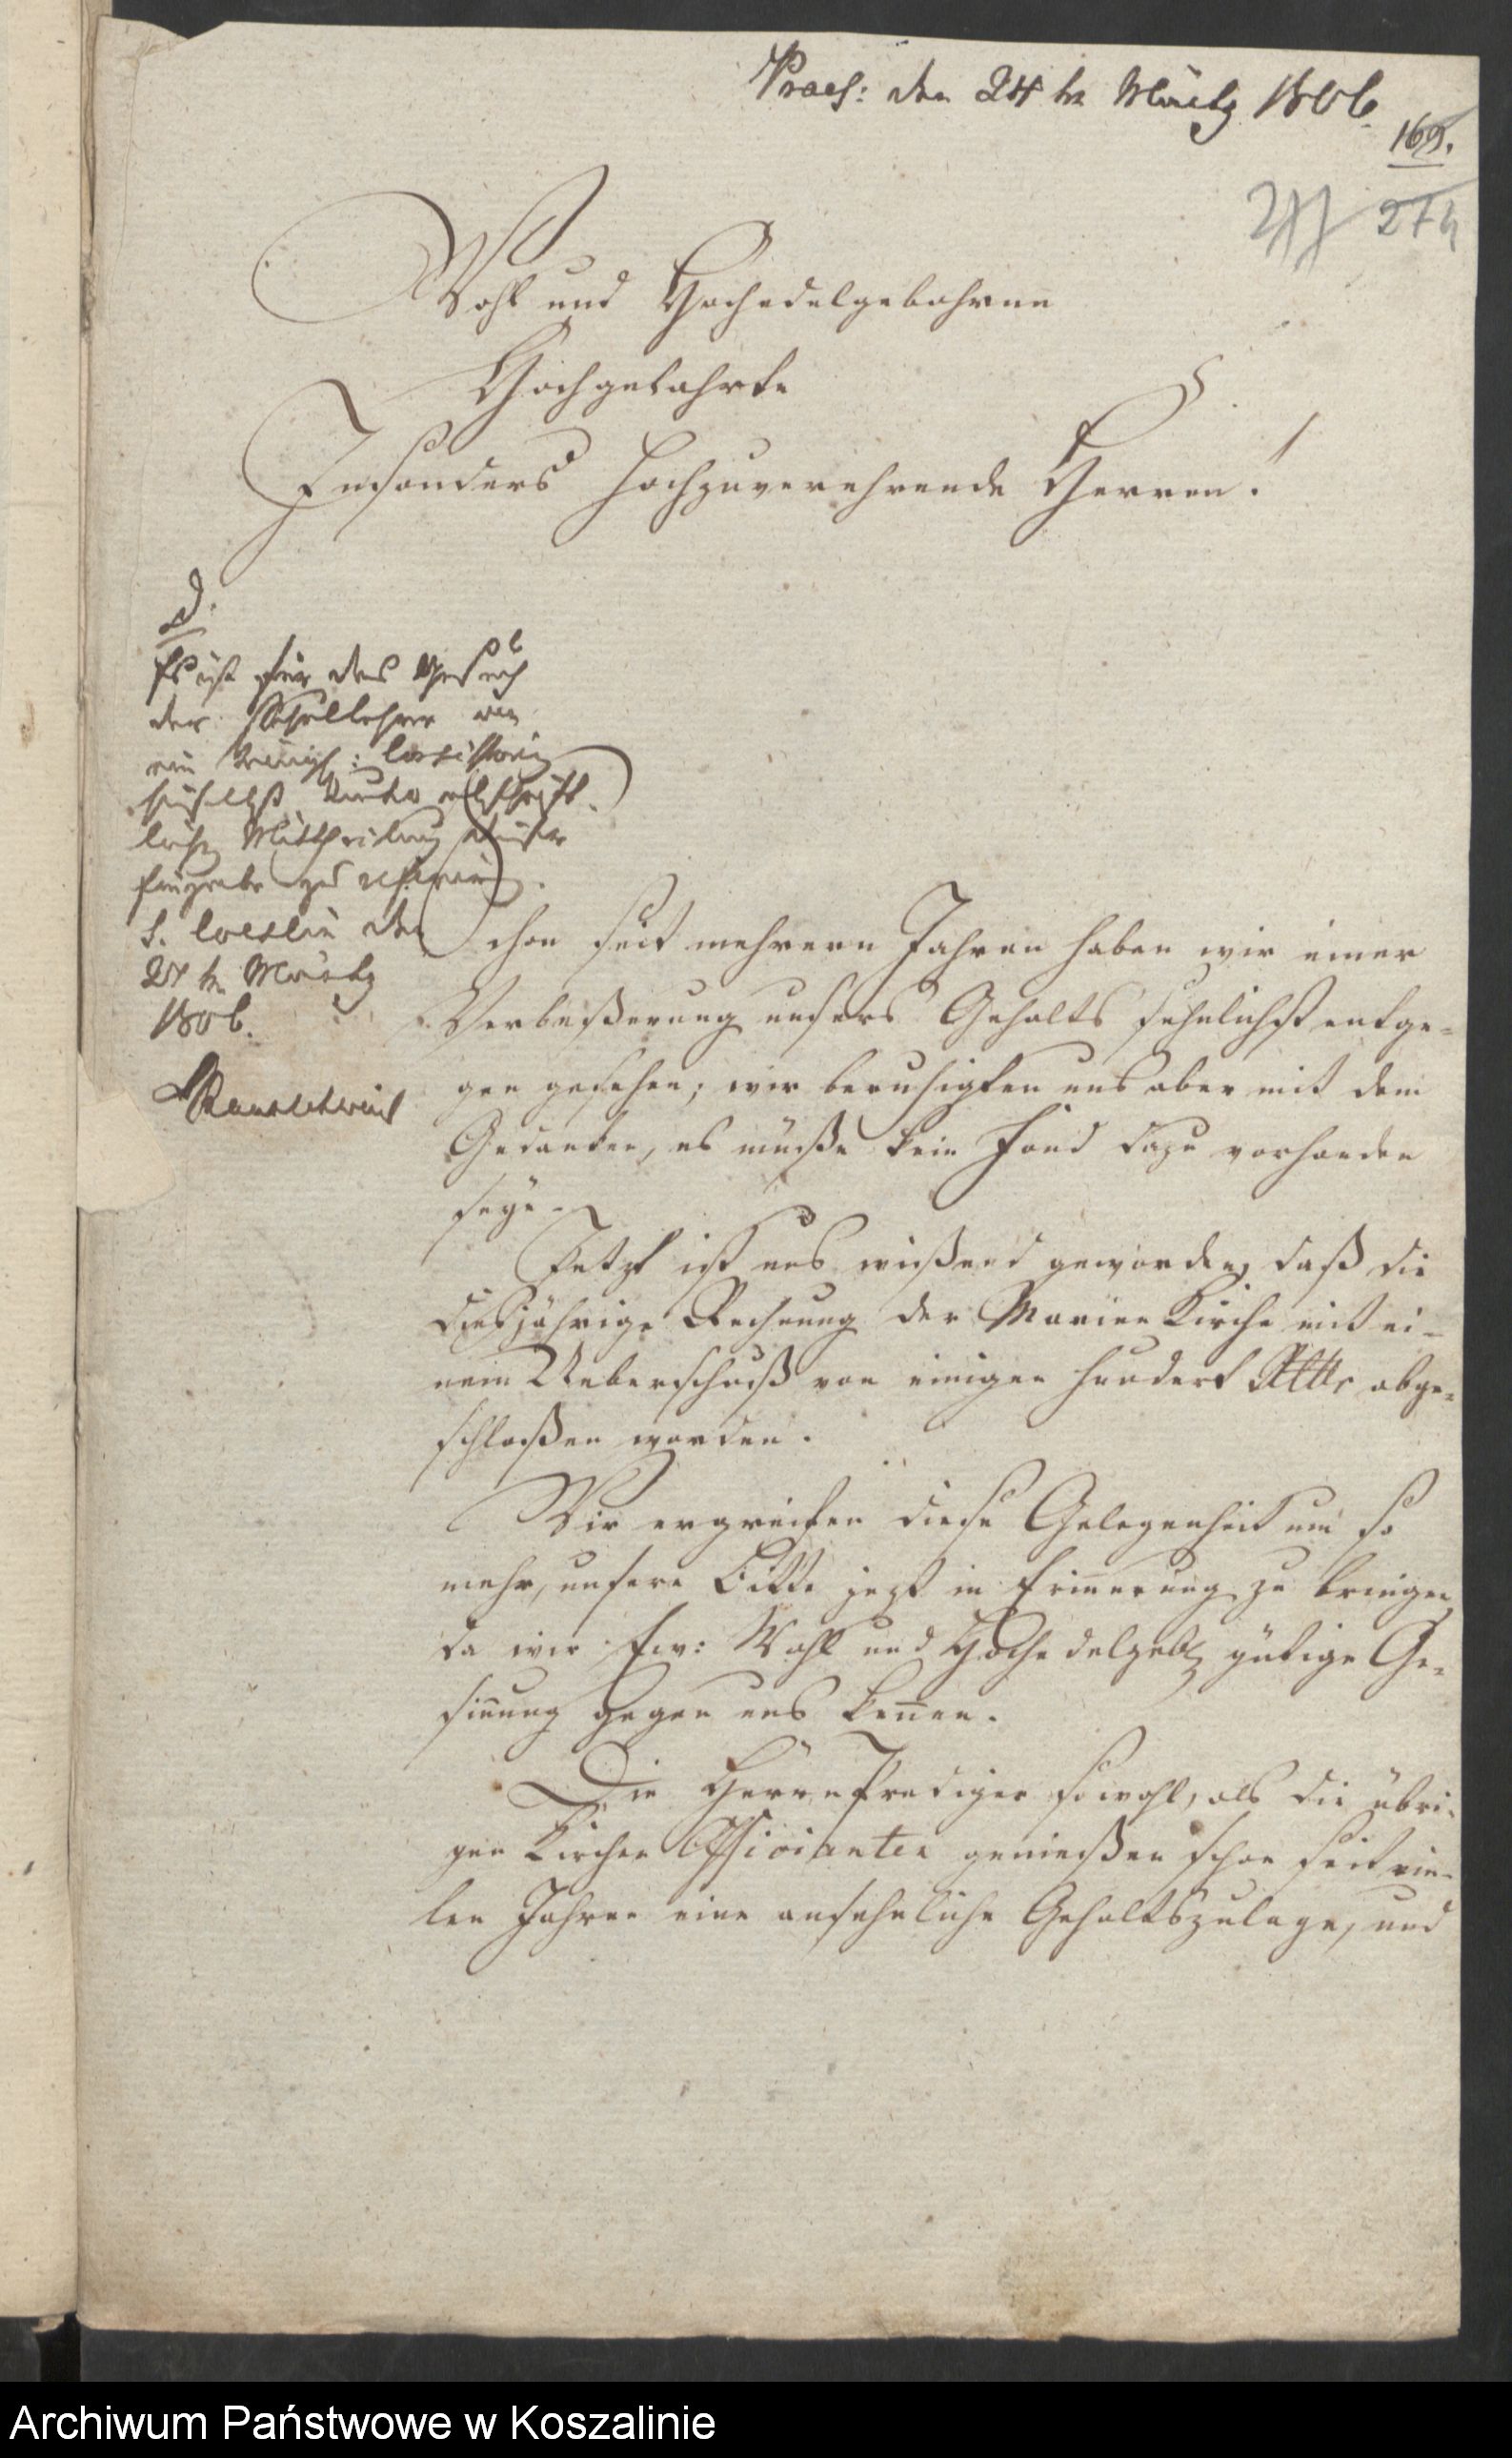 Praes: den 24 tn Maertz 1806.
169.
274
Wohl und Hochedelgebohrne
Hochgelahrte
Insonders Hochzuverehrende Herren!
D.
Es ist für das Gesuch
der Schullehrer
ein
licher Mittheilung dieser
Eingabe zu referiren.
S. Coeslin den
24 tn Maertz
1806.
Schon seit mehrern Jahren haben wir einer
Verbeßerung unsers Gehalts sehnlichst entge-
gen gesehen; wir beruhigten uns aber mit dem
Gedanken, es müße kein Fond dazu vorhanden
seyn.
Jetzt ist uns wißend geworden, daß die
diesjährige Rechnung der Marien Kirche mit ei-
nem Ueberschuß von einigen hundert Rtlr abge-
schloßen worden.
Wir ergreifen diese Gelegenheit um so
mehr, unsere Bitte jezt in Erinnerung zu bringen,
da wir Ew: Wohl und Hochedelgeb gütige Ge-
sinnung gegen uns kennen.
Die Herren Prediger sowohl, als die übri-
gen Kirchen Officianten genießen schon seit vie-
len Jahren eine ansehnliche Gehaltszulage, und
Archiwum Państwowe w Koszalinie